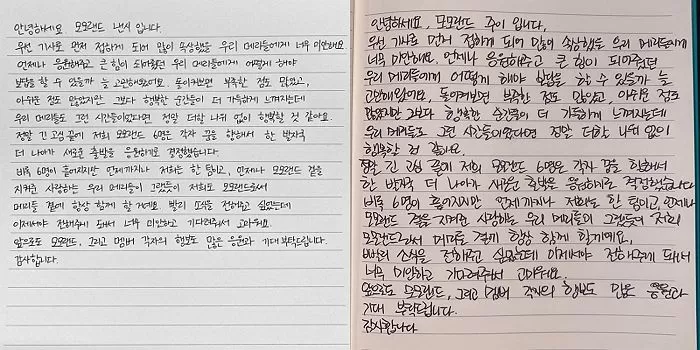 안녕하세요. 모모랜드 낸시 입니다.
우선 기사로 먼저 접하게 되어 많이 속상했을 우리 메리들에게 너무 미안해요
언제나 응원해주고 큰 힘이 되어줬던 우리 메리들에게 어떻게 해야
보답을 할 수 있을까 늘 고민해왔어요. 돌이켜보면 부족한 점도 많았고,
아쉬운 점도 많았지만 그보다 행복한 순간들이 더 가득하게 느껴지는데
우리 메리들도 그런 시간들이었다면 정말 더할 나위 없이 행복할 것 같아요.
정말 긴 고민 끝에 저희 모모랜드 6명은 각자 꿈을 향해서 한 발자국
더 나아가 새로운 출발을 응원하기로 결정했습니다.
비록 6명이 흩어지지만 언제까지나 저희는 한 팀이고, 언제나 모모랜드 곁을
지켜준 사랑하는 우리 메리들이 그랬듯이 저희도 모모랜드로써
메리들 곁에 항상 함께 할 거예요. 빨리 소식을 전해주고 싶었는데
이제서야 전해주게 돼서 너무 미안하고 기다려줘서 고마워요.
앞으로도 모모랜드, 그리고 멤버 각자의 행보도 많은 응원과 기대 부탁드립니다.
감사합니다.
안녕하세요. 모모랜드 주이 입니다.
우선 기사로 먼저 접하게 되어 많이 속상했을 우리 메리들에게
너무 미안해요. 언제나 응원해주고 큰 힘이 되어줬던
우리 메리들에게 어떻게 해야 보답을 할 수 있을까 늘
고민해왔어요. 돌이켜보면 부족한 점도 많았고, 아쉬운 점도
많았지만 그보다 행복한 순간들이 더 가득하게 느껴지는데
우리 메리들도 그런 시간들이었다면 정말 더할 나위 없이
행복할 것 같아요.
정말 긴 고민 끝에 저희 모모랜드 6명은 각자 꿈을 향해서
한 발자국 더 나아가 새로운 출발을 응원하기로 결정했습니다
비록 6명이 흩어지지만 언제까지나 저희는 한 팀이고, 언제나
모모랜드 곁을 지켜준 사랑하는 우리 메리들이 그랬듯이 저희도
모모랜드로써 메리들 곁에 항상 함께 할게요.
빨리 소식을 전해주고 싶었는데 이제서야 전해주게 돼서
너무 미안하고 기다려줘서 고마워요.
앞으로도 모모랜드, 그리고 멤버 각자의 행보도 많은 응원과
기대 부탁드립니다.
감사합니다